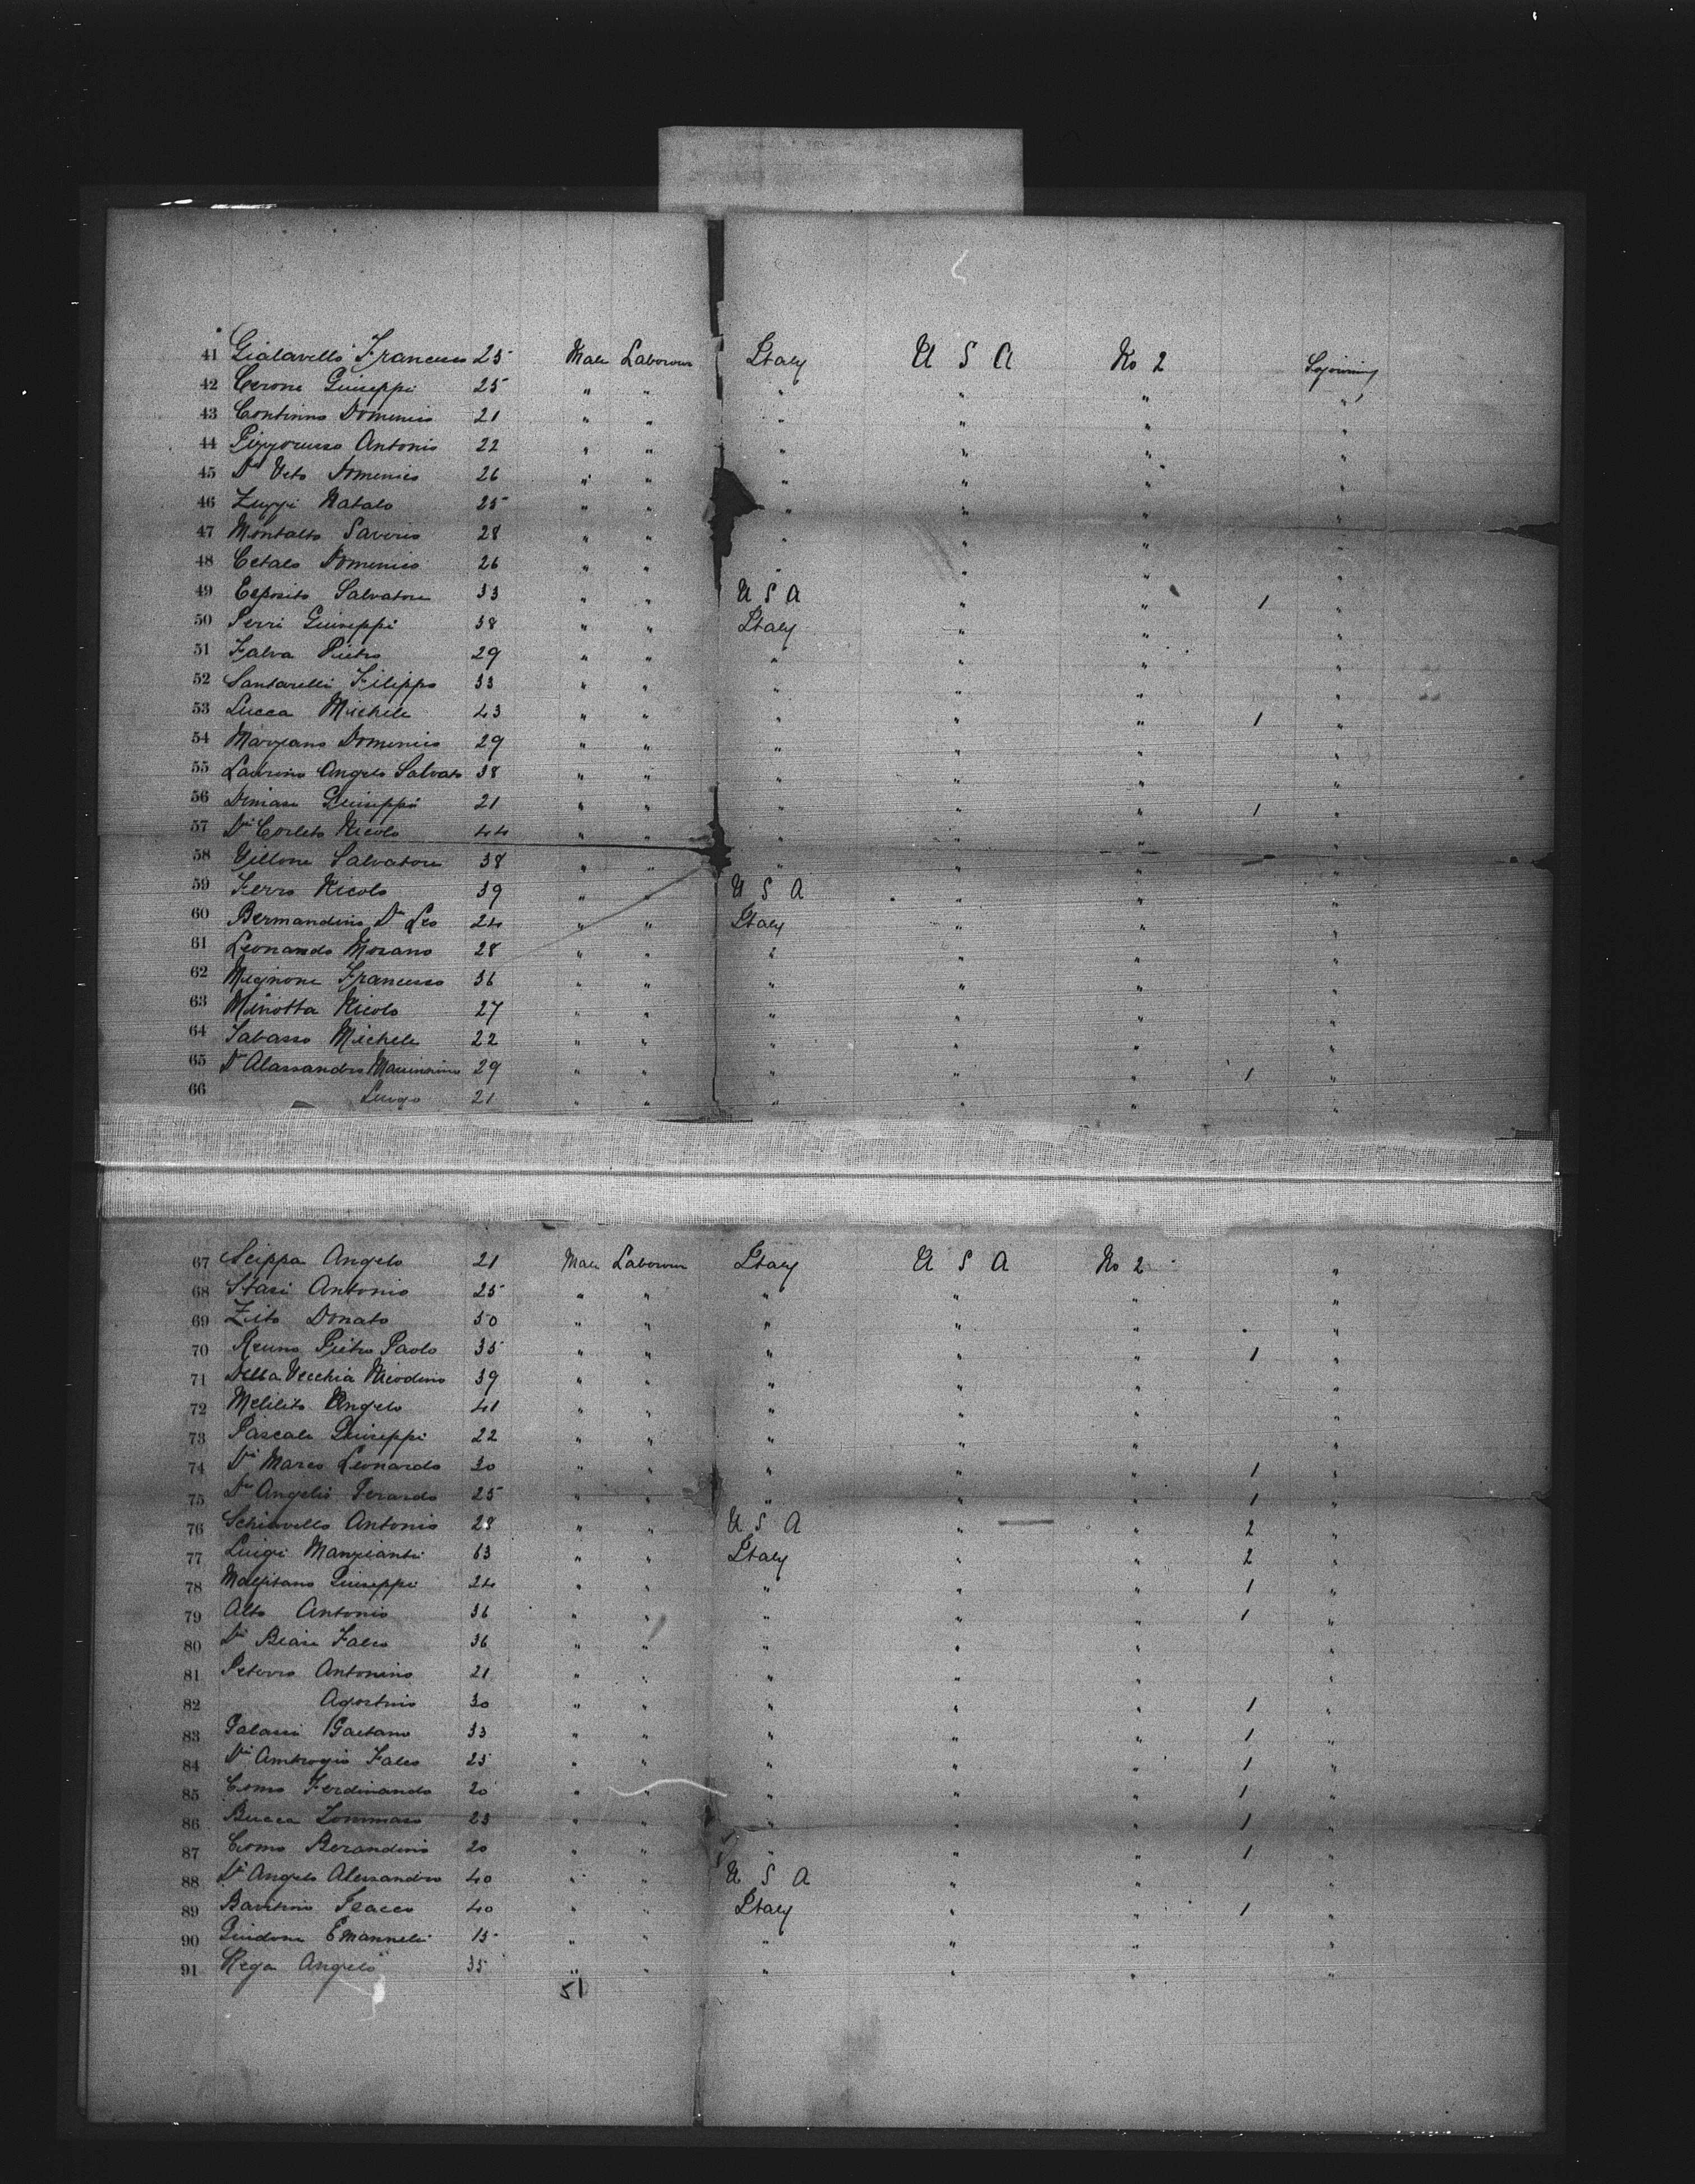 41 Gialavello Francesco 25 Male Labourer Italy U S A No 2 Sojourning
42 Cerone Giuseppi 25 " " " " " "
43 Continno Domenico 21 " " " " " "
44 Pizzorusso Antonio 22 " " " " " "
45 De Veto Domenico 26 " " " " " "
46 Zuppi Natalo 25 " " " " " "
47 Montalto Saverio 28 " " " " " "
48 Cetalo Domenico 26 " " " " " "
49 Esposito Salvatore 33 " " U S A " " 1 "
50 Perri Giuseppi 38 " " Italy " " "
51 Falva Pietro 29 " " " " " "
52 Santarelli Filippo 33 " " " " " "
53 Lucca Michele 43 " " " " " 1 "
54 Marzano Domenico 29 " " " " " "
55 Laurino Angelo Salvato 38 " " " " " "
56 Giuseppi 21 " " " " " 1 "
57 Di Corleto Nicolo 44 " " " " " "
58 Villone Salvatore 38 " " " " " "
59 Ferro Nicolo 39 " " U S A " " "
60 Bermandino De Leo 24 " " Italy " " "
61 Leonardo Morano 28 " " " " " "
62 Mignone Francesco 36 " " " " " "
63 Minotta Nicolo 27 " " " " " "
64 Sabasso Michele 22 " " " " " "
65 D'Alassandro 29 " " " " " 1 "
66 Luigo 21 " " " " " "
67 Scippa Angelo 21 Male Labourer Italy U S A No 2 "
68 Stasi Antonio 25 " " " " " "
69 Zito Donato 50 " " " " " "
70 Reuno Pietro Paolo 35 " " " " " 1 "
71 Della Vecchia Nicodino 39 " " " " " "
72 Melilito Angelo 41 " " " " " "
73 Pascale Giuseppi 22 " " " " " "
74 Di Marco Leonardo 30 " " " " " 1 "
75 De Angelis Gerardo 25 " " " " " 1 "
76 Schiavello Antonio 28 " " U S A " " 2 "
77 Luigi Manzianti 63 " " Italy " " 2 "
78 Malfitano Giuseppi 24 " " " " " 1 "
79 Alto Antonio 36 " " " " " 1 "
80 Di Biase Falco 36 " " " " " "
81 Peterro Antonino 21 " " " " " "
82 Agostino 30 " " " " " 1 "
83 Galassi Gaetano 33 " " " " " 1 "
84 Di Ambrogio Falco 25 " " " " " 1 "
85 Como Ferdinando 20 " " " " " 1 "
86 Bucca Tommaso 23 " " " " " 1 "
87 Como Berandino 20 " " " " " 1 "
88 D'Angelo Alessandro 40 " " U S A " " "
89 40 " " Italy " " 1 "
90 Guidone Emanuele 15 " " " " " "
91 Rega Angelo 35 " " " " " "
51